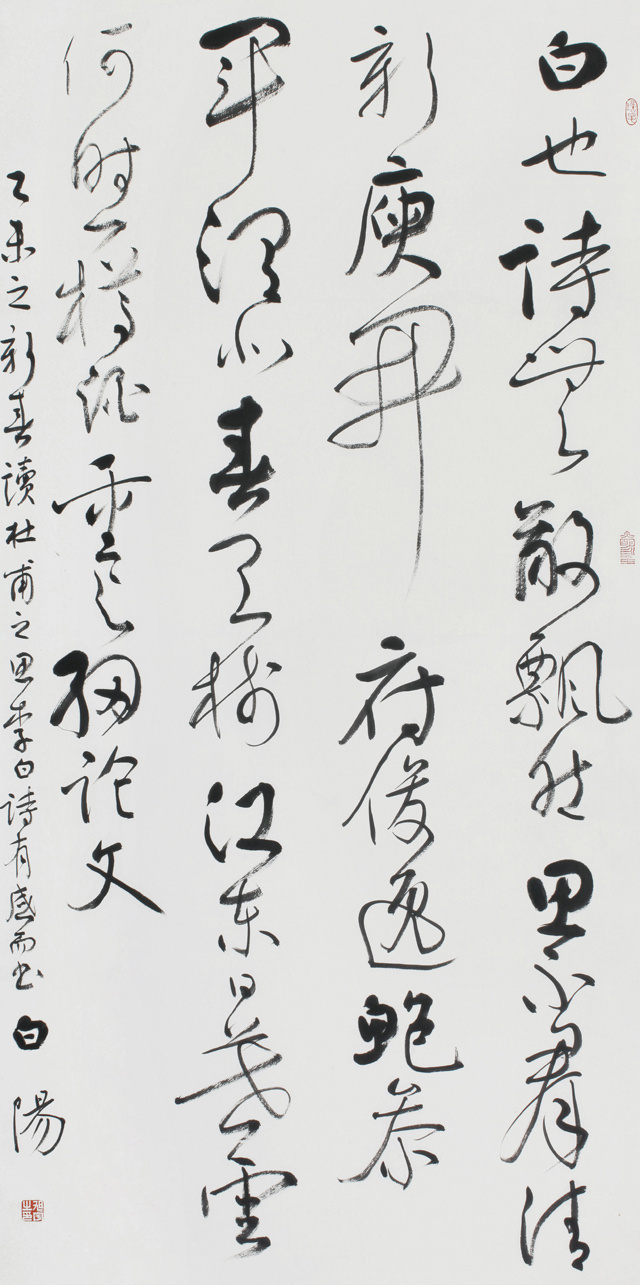 白也詩無敵飄然思不羣清
新庾開府俊逸鮑參
軍渭北春天樹江東日暮雲
何時一樽酒重与細论文
乙未之新春讀杜甫之思李白詩有感而书 白陽